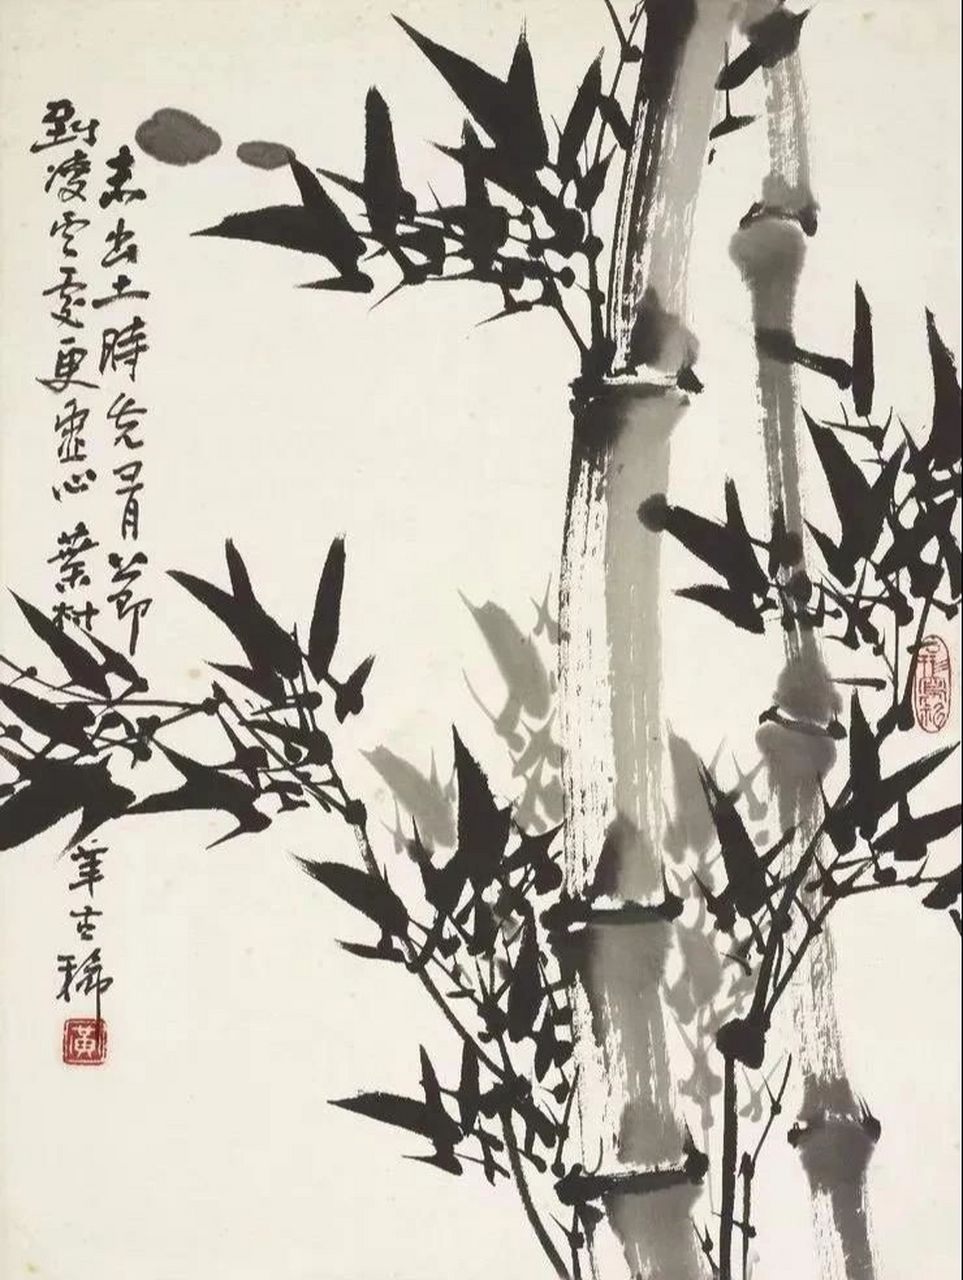 未出土時先有節
到凌云處更虛心 葉村
年古稀
黃